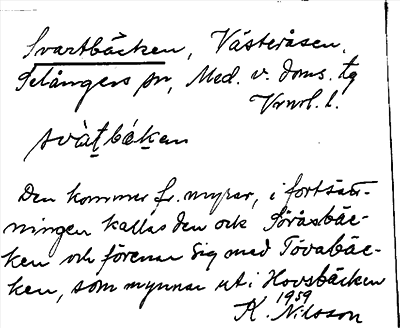 Svartbäcken, Västeråsen,
Selångers sn, Med. v. doms. tg
Vnrl. l.
svàt̠bák̠en
Den kommer fr. myrar, i fortsätt-
ningen kallas den ock Söråsbäc-
ken och förenar sig med Tövabäc-
ken, som mynnar ut i Hovsbäcken
1959
K. Nilsson